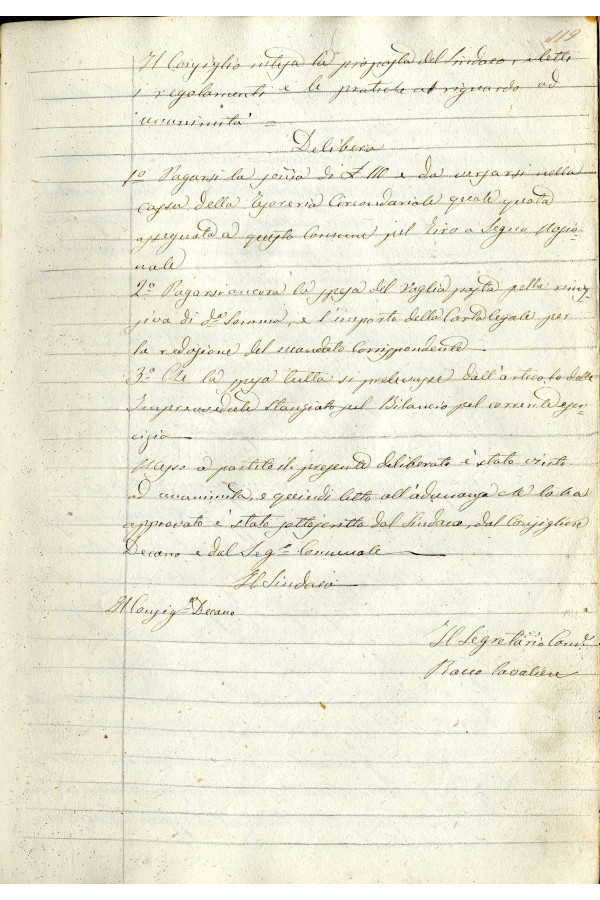 119
Il Consiglio intesa la proposta del Sindaco, e letti
i regolamenti e le pratiche al riguardo ad
unanimità =
Delibera
1º Pagarsi la somma di £ 111 e da versarsi nella
cassa della Tesoreria Circondariale quale quota
assegnata a questo Comune pel Tiro a Segno Nazio-
nale
2º Pagarsi ancora la spesa del Vaglia postale pella rimes-
siva di d.ª Somma, e l'importo della Carta legale per
la redazione del mandato corrispondente
3º Che la spesa tutta si prelevasse dall'articolo delle
Imprevedute stanziato pel Bilancio pel corrente eser-
cizio
Messo a partito il presente deliberato è stato vinto
ad unanimità, e quindi letto all'adunanza che lo ha
approvato è stato sottoscritto dal Sindaco, dal Consigliere
Decano e dal Seg.º Comunale
Il Sindaco
Il Consig.re Decano
Il Segretario Com.le
Rocco Cavalieri